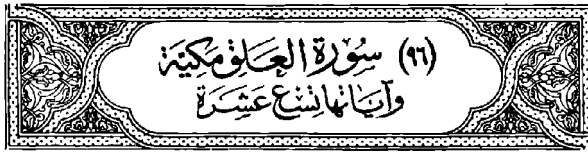 (٩٦) سُورَةُ الْعَلَقِ مَكِيَّة
وَآيَاتُهَا تِسْعَ عَشَرَة